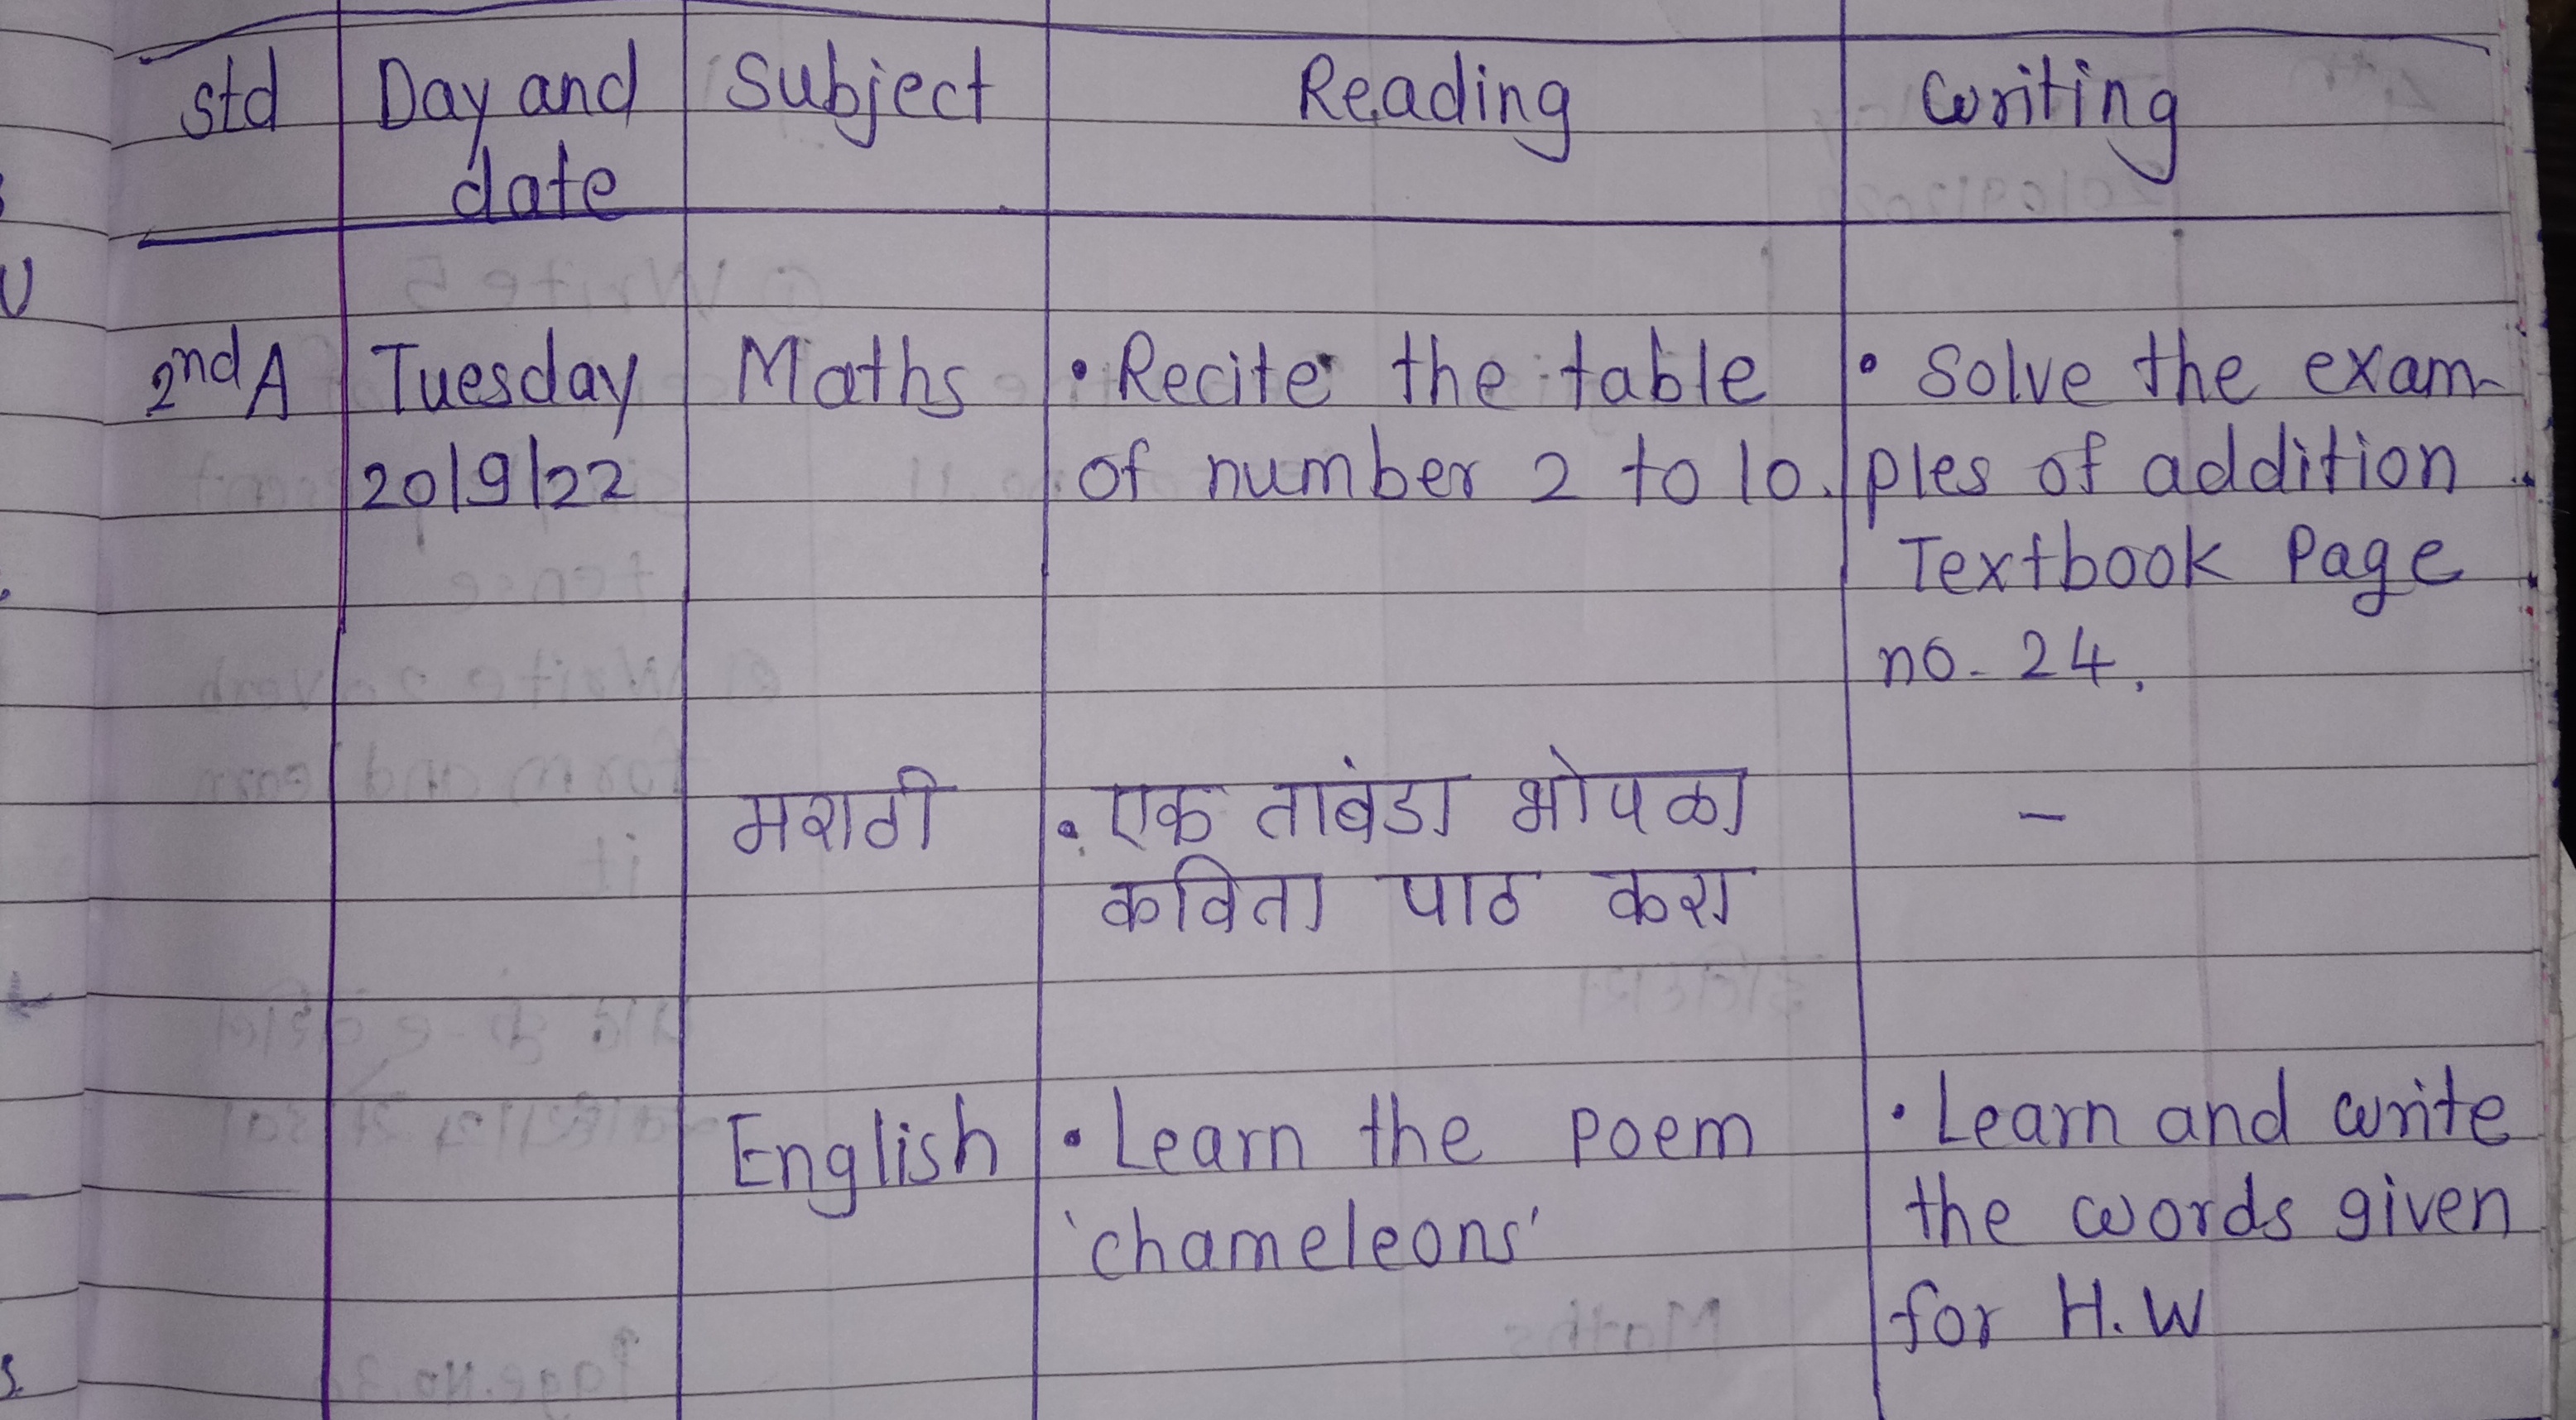 std Day and Subject Reading writing
date
2nd A Tuesday Maths • Recite the table • Solve the exam-
20/9/22 of number 2 to 10. ples of addition
Textbook Page
no. 24.
मराठी • एक ताबंडा भोपळा –
कविता पाठ करा
English • Learn the poem • Learn and write
'chameleons' the words given
for H.W